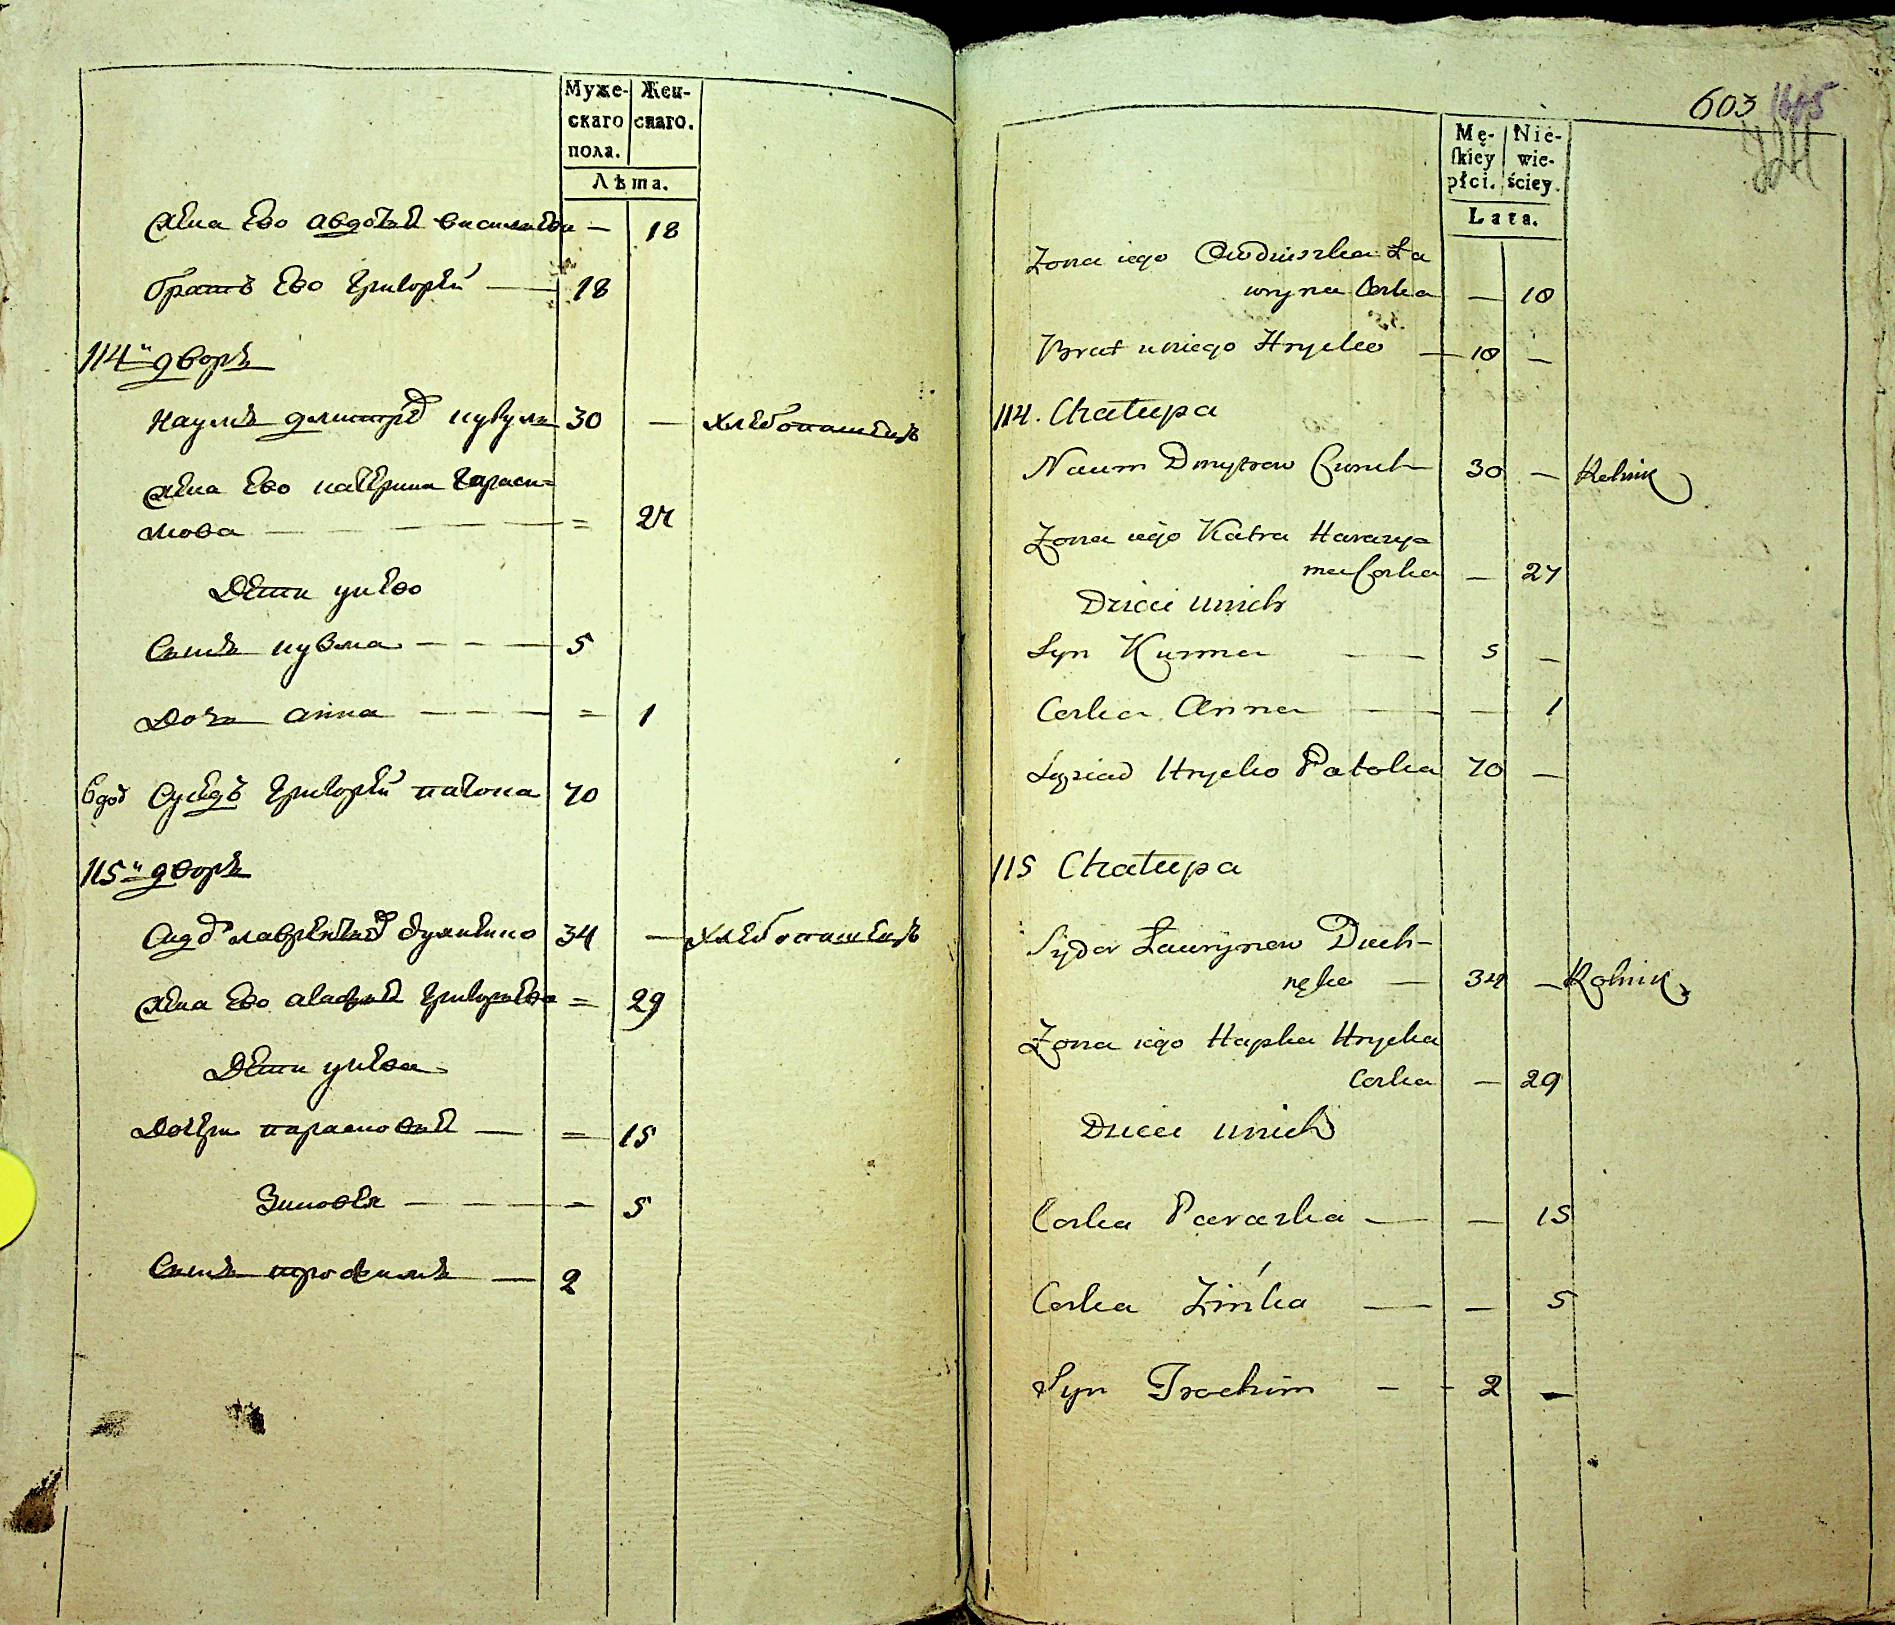 Муже-
скаго
пола.
Жен-
скаго.
Лѣта.
жена ево авдотья василиева — 18
братъ ево григорей — 18
114й дворъ
наумъ дмитрев 30 — хлебопашецъ
жена ево катерина гараси=
мова — = 27
Дети унево
Сынъ кузма — 5
Дочь анна — = 1
вдов Суседъ григорей патока 70
115й дворъ
Сидор лаврентьев 34 — хлебопашецъ
жена ево агафья григорьева = 29
Дети унева
Дочери парасковья — = 15
Зиновья — = 5
Сынъ трофимъ — 2
603 1605
Mę-
skiey
płci.
Nie-
wie-
ściey.
Lata.
Zona iego Owdiuszka Ła
wryna Corka — 18
Brat uniego Hrycko — 18 —
114. Chałupa
Naum Dmytrow 30 — Rolnik
Zona iego Katra Harasy=
ma Corka — 27
Dzieci unich
Syn Kuzma — 5 —
Corka Anna — — 1
Sąsiad Hrycko Patoka 70 —
115 Chałupa
Sydor Ławrynow Duch-
nęko — 34 — Rolnik
Zona iego Hapka Hrycka
Corka — 29
Dzieci unich
Corka Paraska — — 15
Corka Zińka — — 5
Syn Trochim - - 2 —